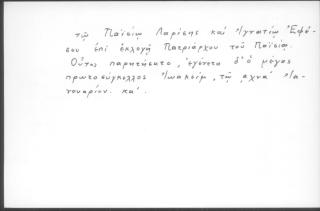 τῷ Παϊσίῳ Λαρίσης καὶ Ἰγνατίῳ Ἐφέ-
σου ἐπὶ ἐκλογῇ Πατριάρχου τοῦ Παϊσίου.
Οὗτος παρῃτήσατο, ἐγένετο δ' ὁ μέγας
πρωτοσύγκελλος Ἰωακείμ, τῷ ͵αχνα' Ἰα-
νουαρίου κα'.